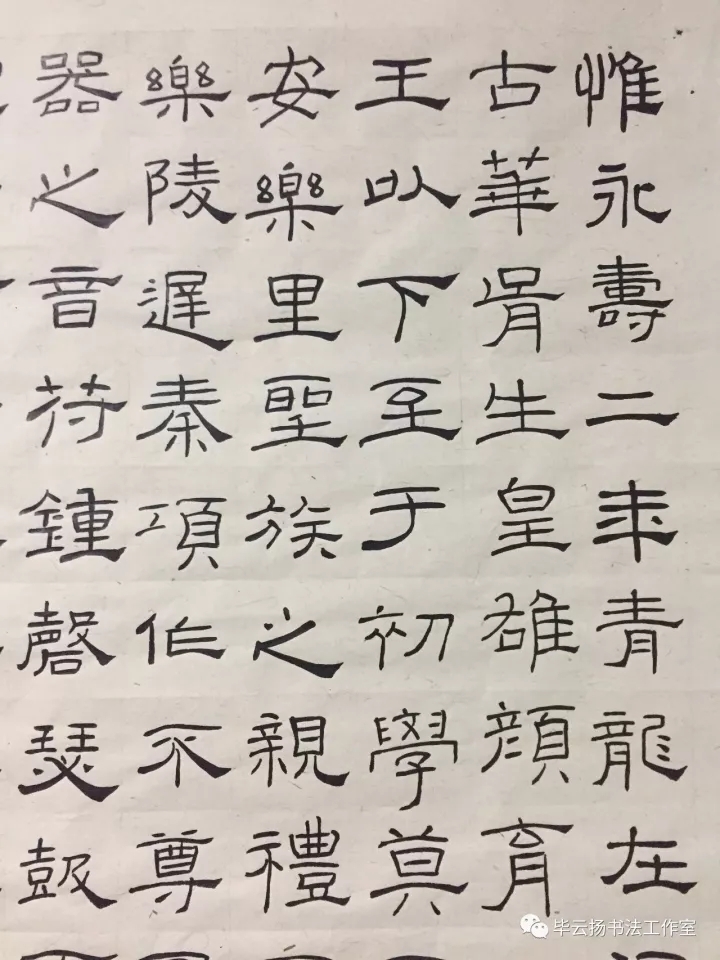 惟永壽二年青龍在
古華胥生皇雄顏育
王以下至于初學莫
安樂里聖族之親禮
樂陵遲秦項作不尊
器之音符鍾磬瑟鼓
毕云扬书法工作室